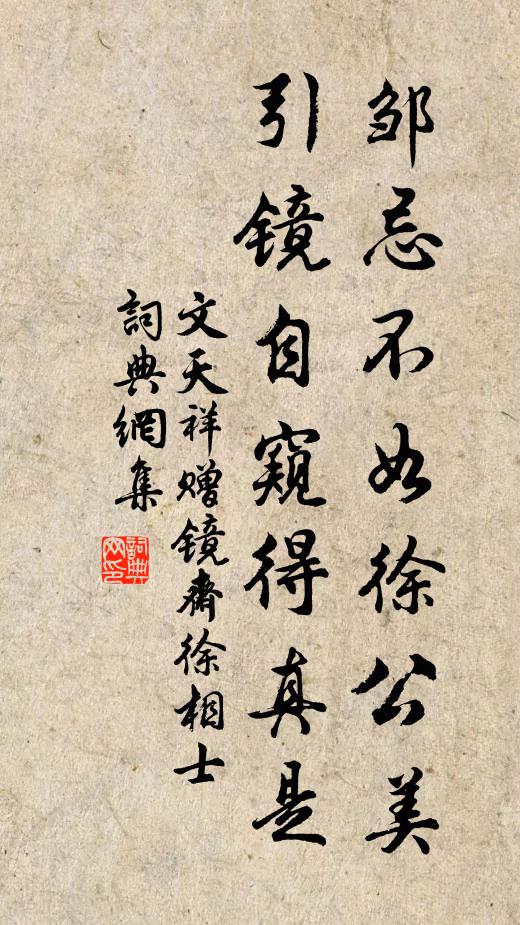 邹忌不如徐公美
引镜自窥得真是
文天祥赠镜斋徐相士
詞典網集
詞典網印